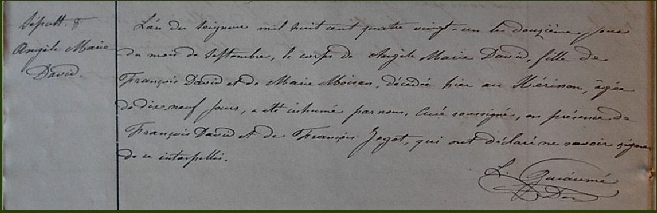 Sépult. de
Angèle Marie
David.
L'an du Seigneur mil huit cent quatre vingt-un le douzième jour
du mois de Septembre, le corps de Angèle Marie David, fille de
François David et de Marie Moisan, décédée hier au Hérisson, âgée
de dix neuf jours, a été inhumé par nous, Curé soussigné, en présence de
François David et de François Jegot, qui ont déclaré ne savoir signer
de ce interpellés.